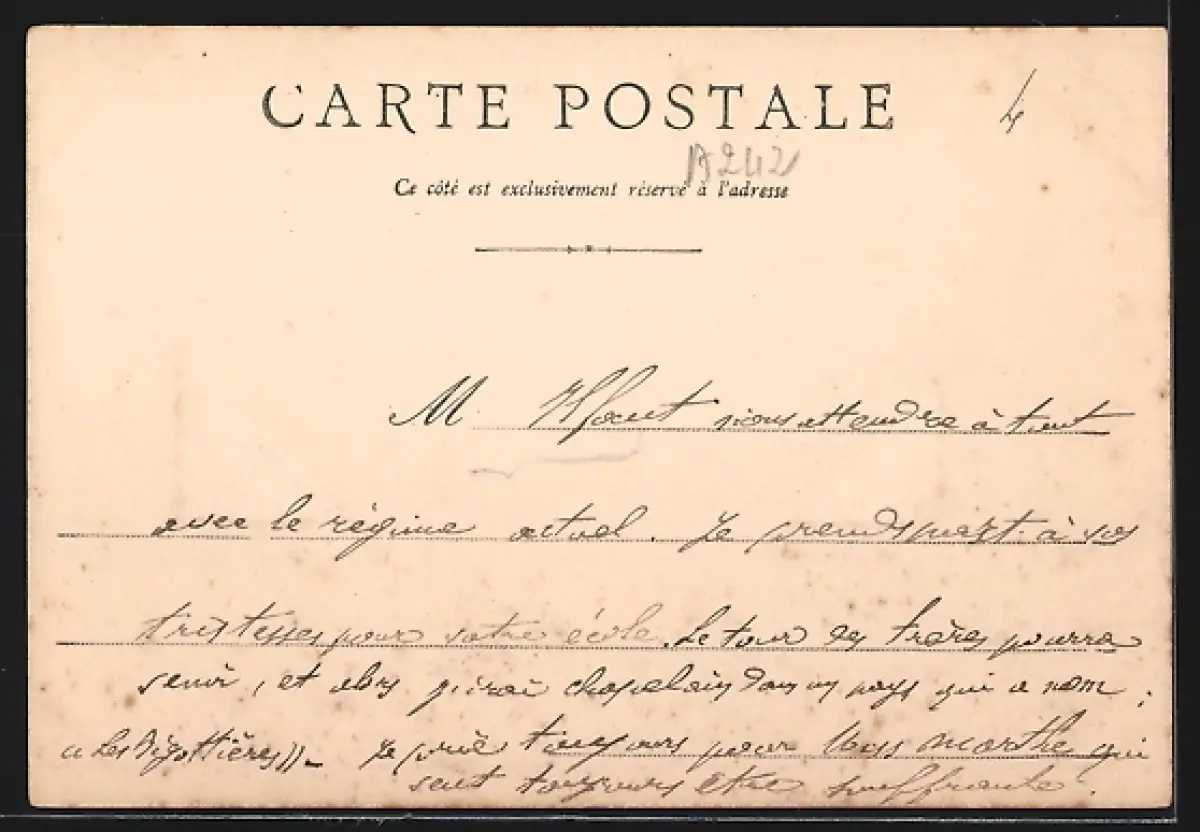 CARTE POSTALE
4
A242
Ce côté est exclusivement réservé à l'adresse
M Il faut nous attendre à tout
avec le régime actuel. Je prends part à vos
tristesses pour votre école. Le tour des frères pourra
venir, et alors j'irai chapelain dans un pays qui a nom;
« Les Bigottières » - Je prie toujours pour Marthe qui
veut toujours être souffrante.